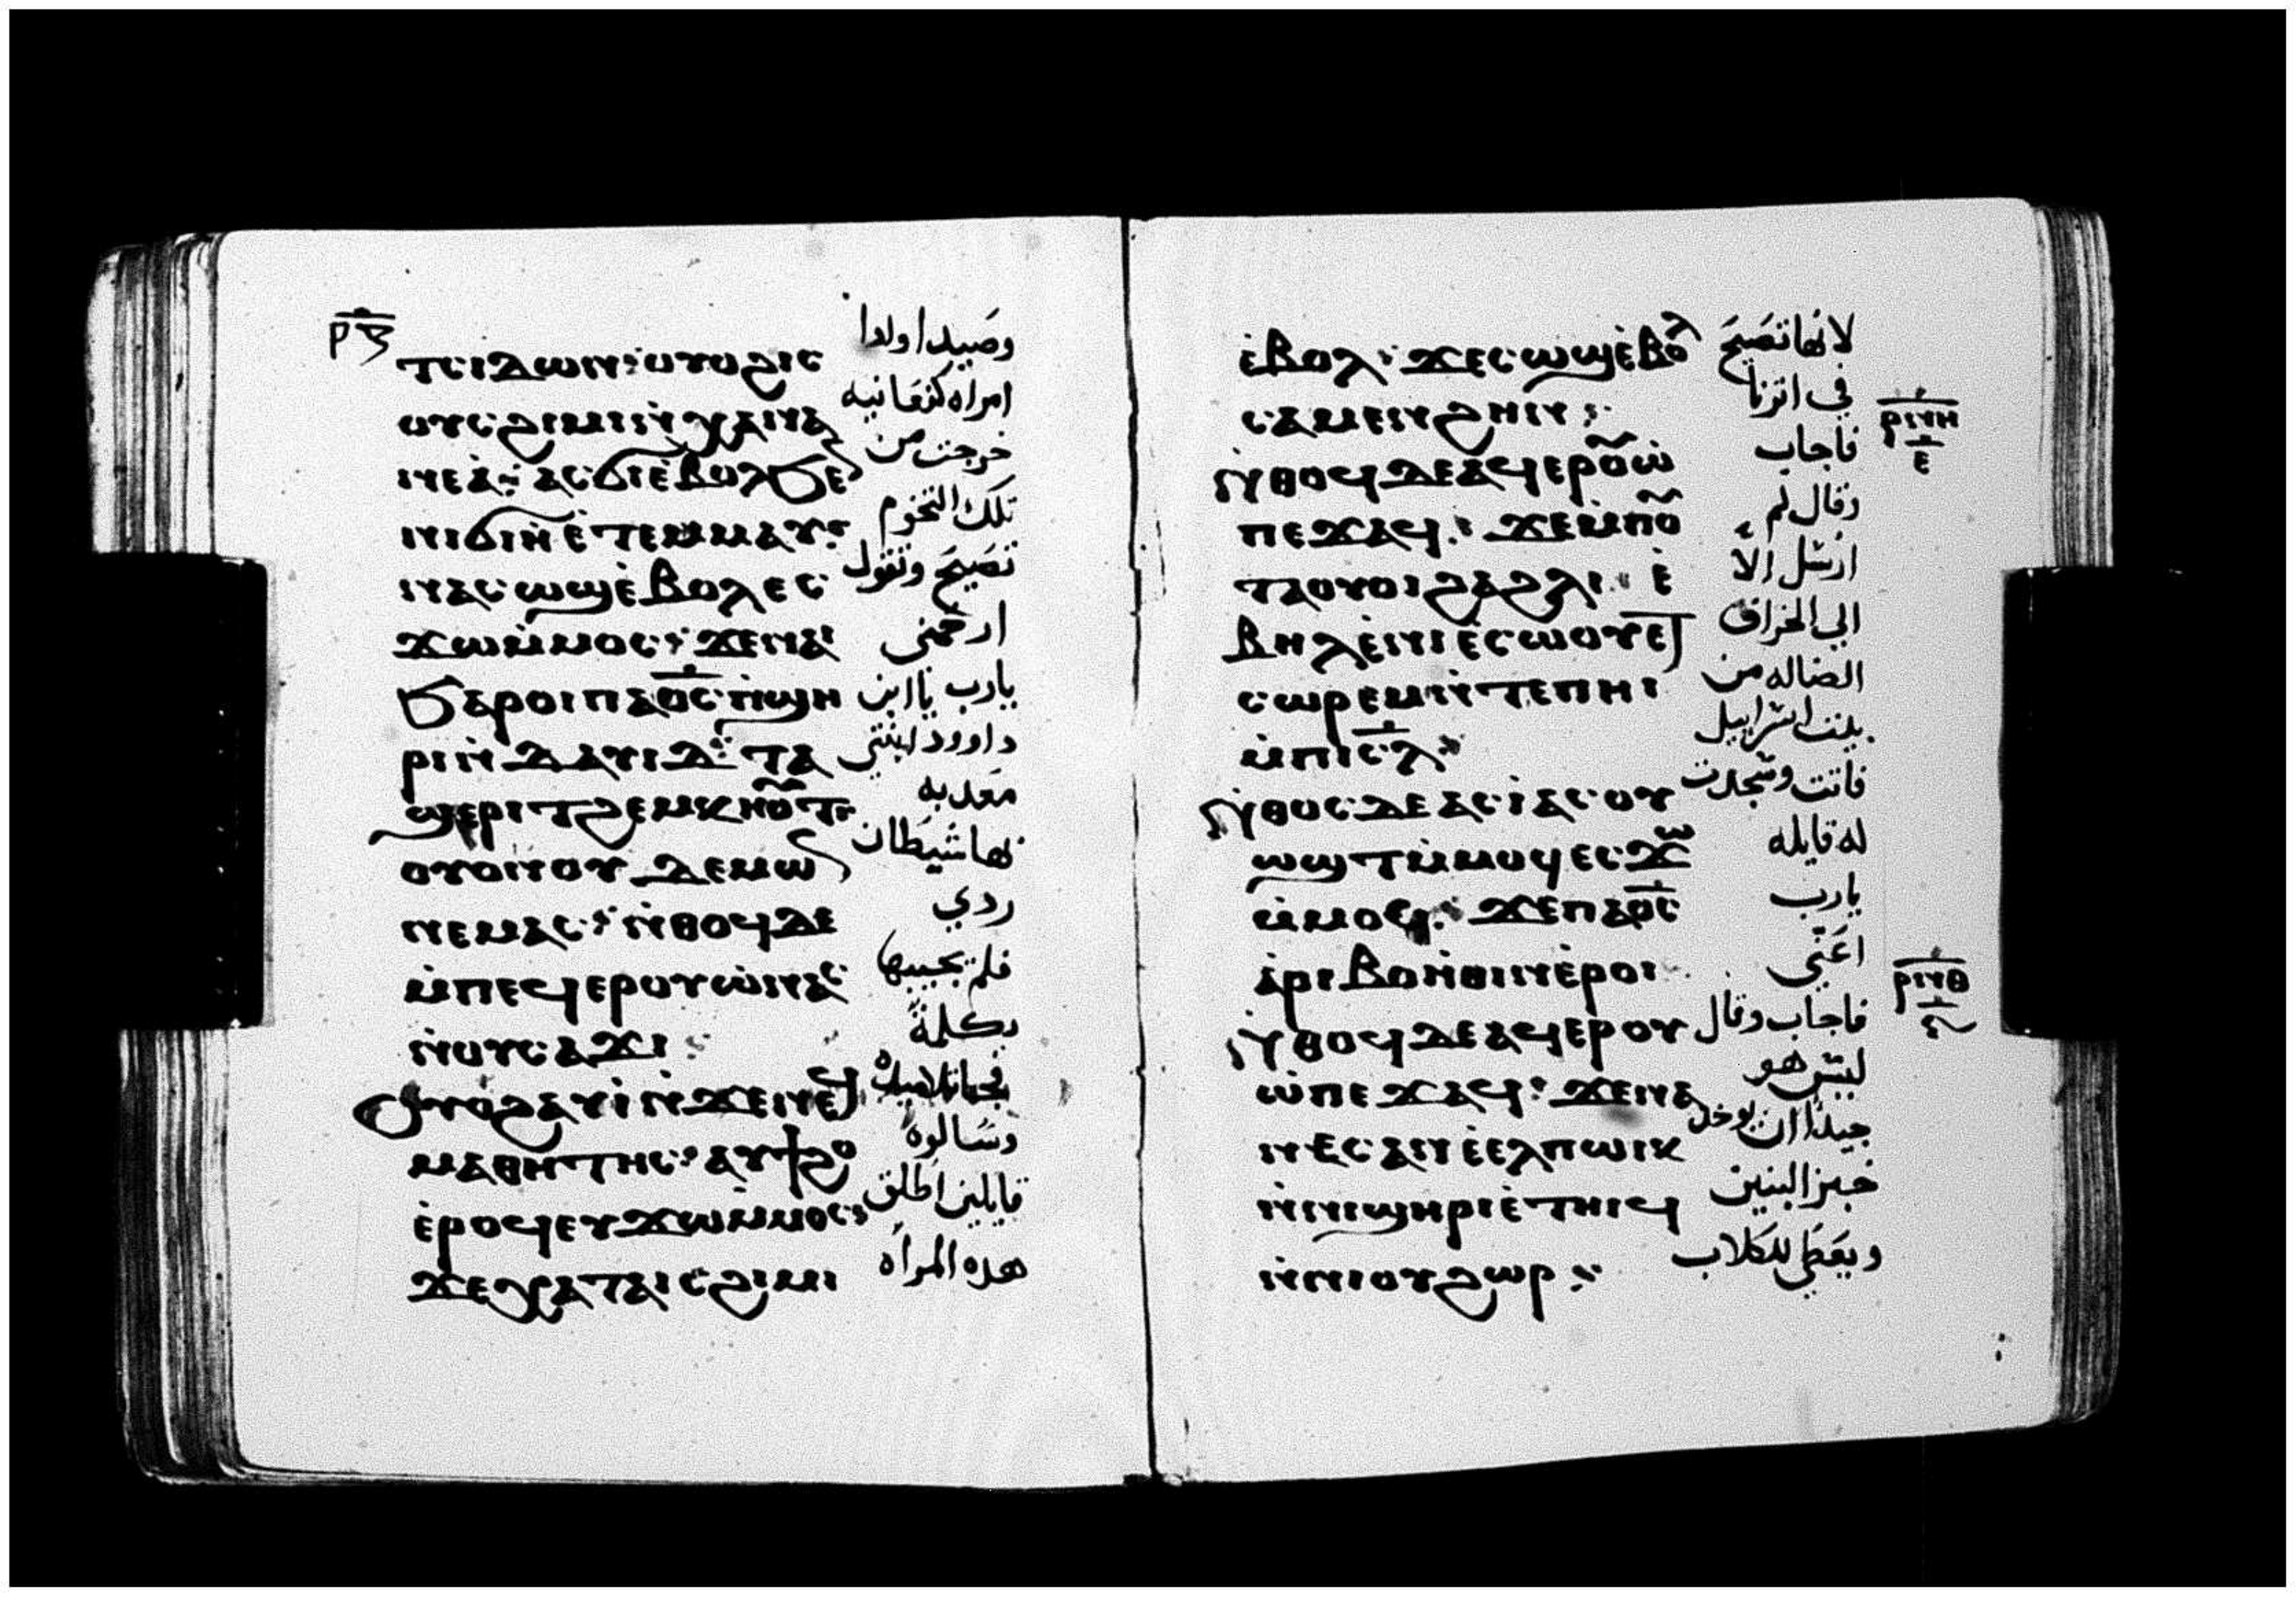 ⲣ︦ⲝ︦
ⲧⲥⲓⲇⲱⲛ: ⲟⲩⲟϩ ⲓⲥ
ⲟⲩⲥϩⲓⲙⲓ ⲛ̀ⲭⲁⲛⲁ
ⲛⲉⲁ: ⲁⲥϭⲓ ⲉ̀ⲃⲟⲗ ϧⲉⲛ
ⲛⲓϭⲓⲏ ⲉ̀ⲧⲉⲙⲙⲁⲩ:
ⲛⲁⲥⲱϣ ⲉ̀ⲃⲟⲗ ⲉⲥ
ϫⲱ ⲙ̀ⲙⲟⲥ: ϫⲉ ⲛⲁⲓ
ϧⲁⲣⲟⲓ ⲡⲁⲟ̅ⲥ̅ ⲡ̀ϣⲏ
ⲣⲓ ⲛ̀ⲇⲁⲩⲓⲇ: ⲧⲁ
ϣⲉⲣⲓ ⲧϩⲉⲙⲕⲏⲟⲩⲧ
ⲟⲩⲟⲛ ⲟⲩⲇⲉⲙⲱⲛ
ⲛⲉⲙⲁⲥ: ⲛ̀ⲑⲟϥ ⲇⲉ
ⲙ̀ⲡⲉϥⲉⲣⲟⲩⲱ̀ ⲛⲁⲥ
ⲛ̀ⲟⲩⲥⲁϫⲓ
ⲟⲩⲟϩ ⲁⲩⲓ̀ ⲛ̀ϫⲉ ⲛⲉϥ
ⲙⲁⲑⲏⲧⲏⲥ: ⲁⲩϯϩⲟ
ⲉ̀ⲣⲟϥ ⲉⲩϫⲱ ⲙ̀ⲙⲟⲥ:
ϫⲉ ⲭⲁ ⲧⲁⲓⲥϩⲓⲙⲓ
وصيدا ولدا
امراه كنعانيه
خرجت من
تلك التخوم
تصيح وتقول
ارحمني
يارب يا ابن
داوود ابنتي
معدبه
بها شيطان
ردي
فلم يجيبها
بكلمة
فجا تلاميده
وسالوه
قايلين اطلق
هده المراه
ⲉ̀ⲃⲟⲗ: ϫⲉ ⲥⲱϣ ⲉ̀ⲃⲟⲗ
ⲥⲁⲙⲉⲛϩⲏⲛ:
ⲛ̀ⲑⲟϥ ⲇⲉ ⲁϥⲉⲣⲟⲩⲱ̀
ⲡⲉϫⲁϥ: ϫⲉ ⲙ̀ⲡⲟⲩ
ⲧⲁⲟⲩⲟⲓ ϩⲁ ϩⲗⲓ ⲉ̀
ⲃⲏⲗ ⲉ̀ⲛⲓⲉ̀ⲥⲱⲟⲩ ⲉⲧ
ⲥⲱⲣⲉⲙ ⲛ̀ⲧⲉ ⲡⲏⲓ
ⲙ̀ⲡⲓⲥ̅ⲗ̅:
ⲛ̀ⲑⲟⲥ ⲇⲉ ⲁⲥⲓ̀ ⲁⲥⲟⲩ
ⲱϣⲧ ⲙ̀ⲙⲟϥ ⲉⲥϫⲱ
ⲙ̀ⲙⲟⲥ: ϫⲉ ⲡⲁⲟ̅ⲥ̅
ⲁ̀ⲣⲓⲃⲟⲏ̀ⲑⲓⲛ ⲉ̀ⲣⲟⲓ
ⲛ̀ⲑⲟϥ ⲇⲉ ⲁϥⲉⲣⲟⲩ
ⲱ̀ ⲡⲉϫⲁϥ: ϫⲉ ⲛⲁ
ⲛⲉⲥ ⲁⲛ ⲉ̀ⲉⲗ ⲡⲱⲓⲕ
ⲛ̀ⲛⲓϣⲏⲣⲓ ⲉ̀ⲧⲏⲓϥ
ⲛ̀ⲛⲓⲟⲩϩⲱⲣ:
لانها تصيح
في اترنا
فاجاب
وقال لم
ارسل الا
الى الخراف
الضاله من
بيت اسراييل
فاتت وسجدت
له قايله
يارب
اعنّي
فاجاب وقال
ليس هو
جيدا ان يوخد
خبز البنين
ويعطي للكلاب
ⲣⲛⲏ
ⲉ
ⲣⲛⲑ